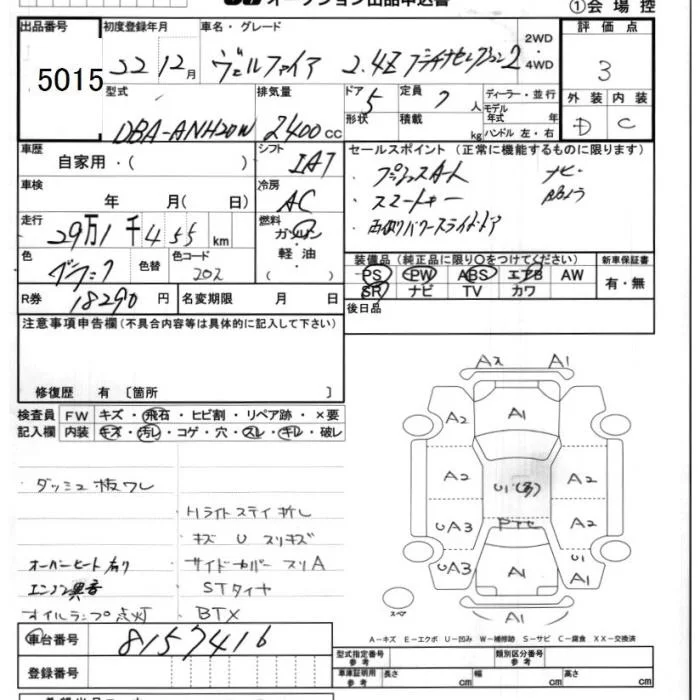 オークション出品申込書
①会場控
出品番号 初度登録年月 車名・グレード 2WD・4WD 評価点
5015 22 12月 ヴェルファイア 2.4Z 3
型式 排気量 ドア 5 定員 7人 ディーラー・並行 外装 内装
DBA-ANH20W 2400cc 形状 積載 kg モデル年式 年 ハンドル 左・右 D C
車歴 自家用・( ) シフト IAT セールスポイント(正常に機能するものに限ります)
・プッシュスタート ・ナビ
車検 年 月( 日) 冷房 AC ・スマートキー
・両側パワースライドドア
走行 29万1千455km 燃料 ガソリン・軽油・( )
色 ブラック 色替 色コード 202 装備品(純正品に限り○をつけてください) 新車保証書
PS PW ABS エアB AW 有・無
R券 18290円 名変期限 月 日 SR ナビ TV カワ
注意事項申告欄(不具合内容等は具体的に記入して下さい) 後日品
修復歴 有〔箇所 〕
検査員 FW キズ・飛石・ヒビ割・リペア跡・×要
記入欄 内装 キズ・汚レ・コゲ・穴・スレ・キレ・破レ
A2 A1
A2 A1 A2
A2 U1 A2
UA3 A2
UA3 A1 U1 A1
スペア A1
ダッシュ板ワレ
ライトステイ折レ
キズ U スリキズ
オーバーヒート有り サイドカバースリA
エンジン異音 STタイヤ
オイルランプ点灯 BTX
A-キズ E-エクボ U-凹み W-補修跡 S-サビ C-腐食 XX-交換済
車台番号 8157416 型式指定番号 参考 類別区分番号 参考
登録番号 車庫証明用 参考 長さ cm 幅 cm 高さ cm